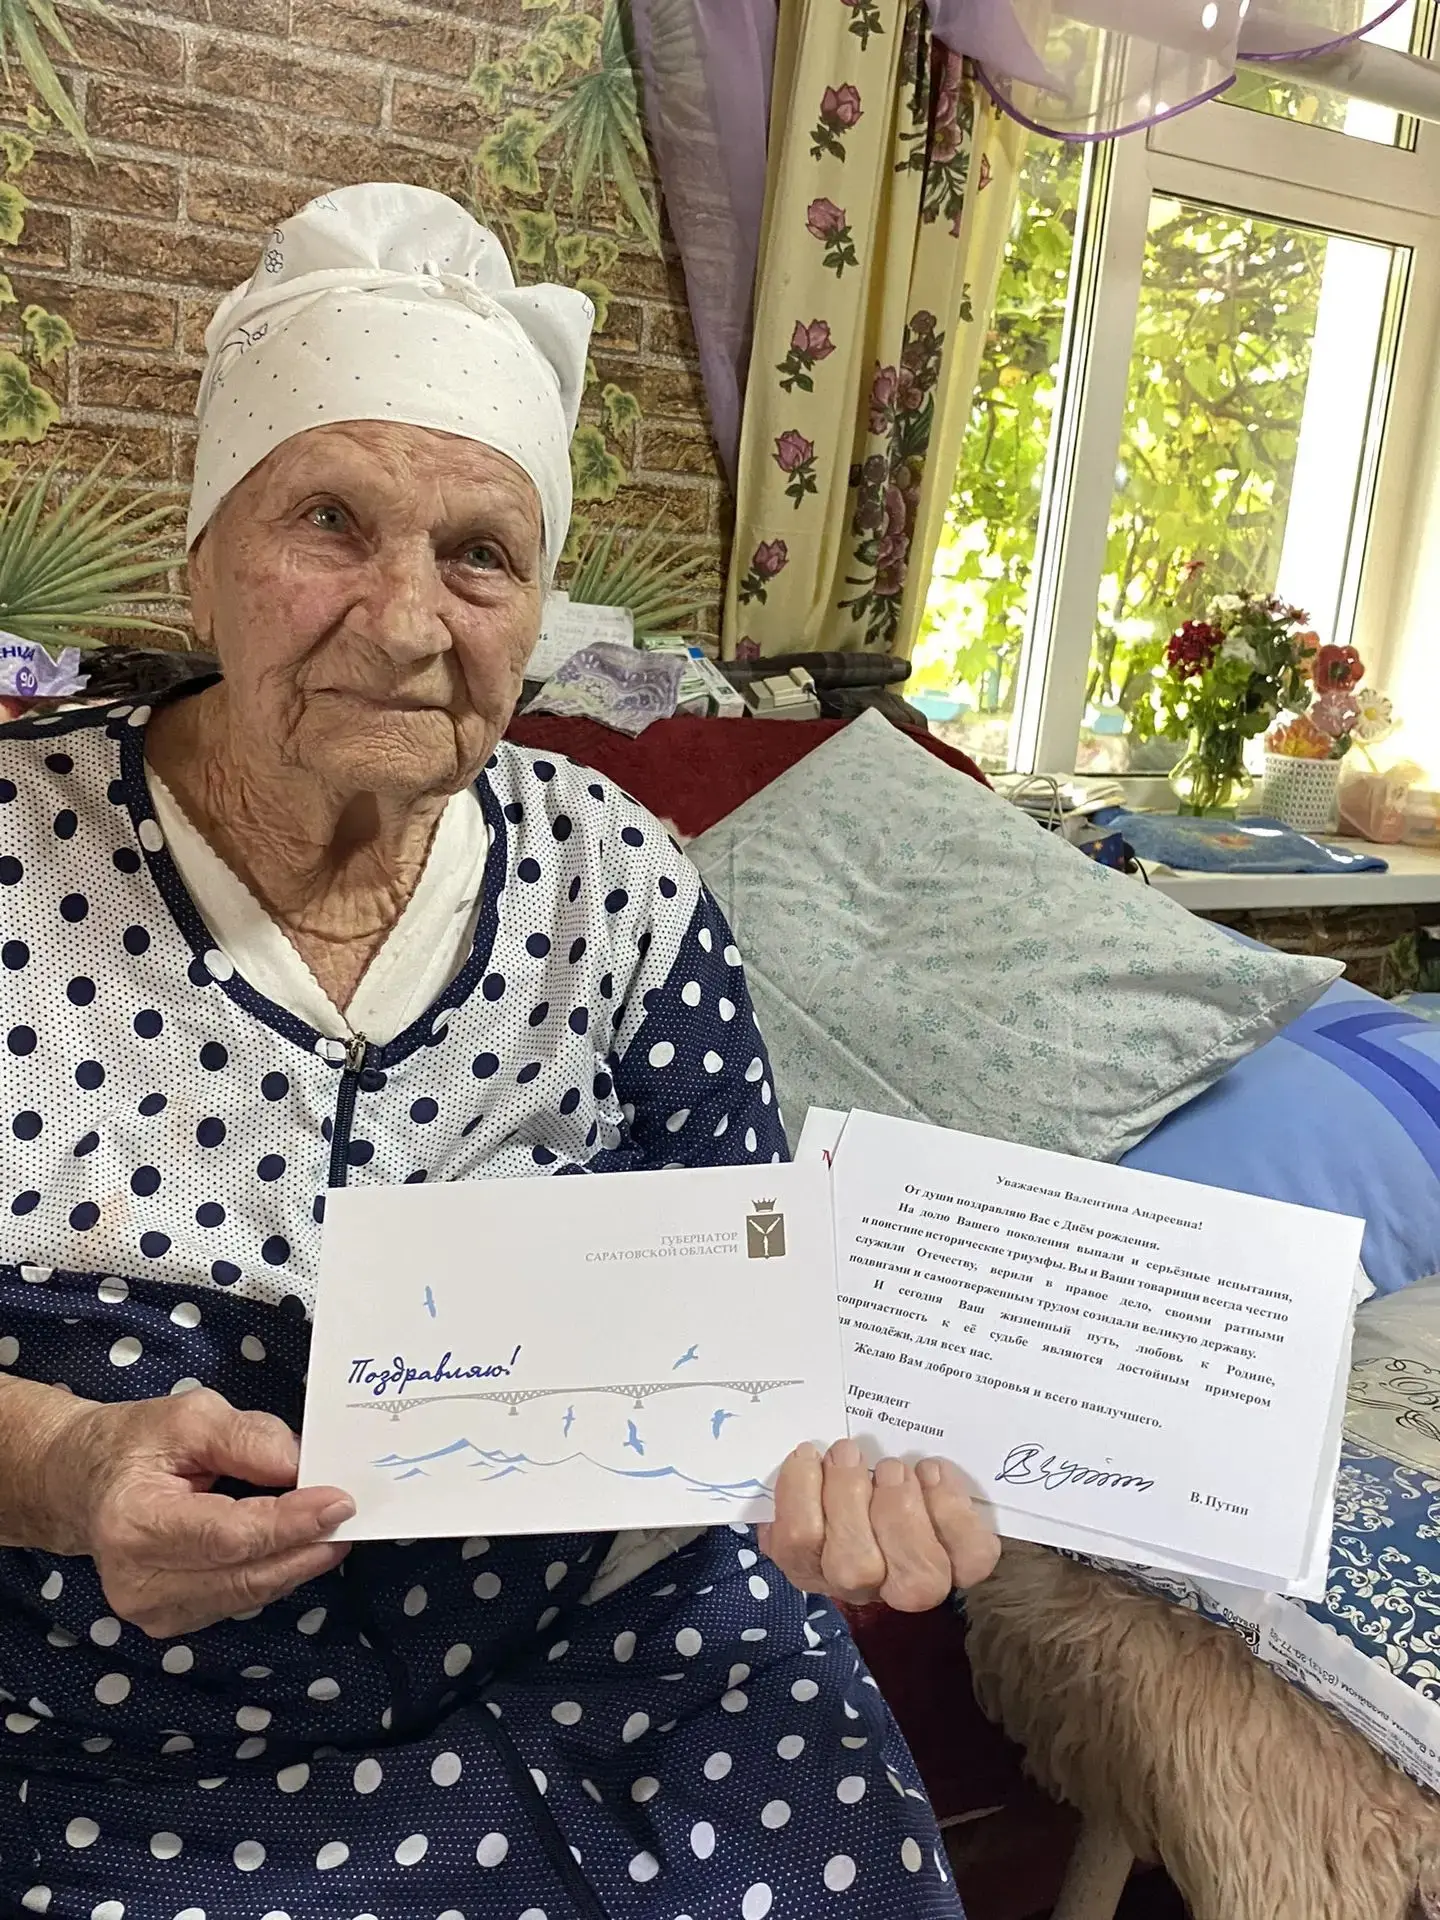 ГУБЕРНАТОР
САРАТОВСКОЙ ОБЛАСТИ
Поздравляю!
Уважаемая Валентина Андреевна!
От души поздравляю Вас с Днём рождения.
На долю Вашего поколения выпали и серьёзные испытания,
и поистине исторические триумфы. Вы и Ваши товарищи всегда честно
служили Отечеству, верили в правое дело, своими ратными
подвигами и самоотверженным трудом созидали великую державу.
И сегодня Ваш жизненный путь, любовь к Родине,
сопричастность к её судьбе являются достойным примером
молодёжи, для всех нас.
Желаю Вам доброго здоровья и всего наилучшего.
Президент
ской Федерации
В. Путин
90